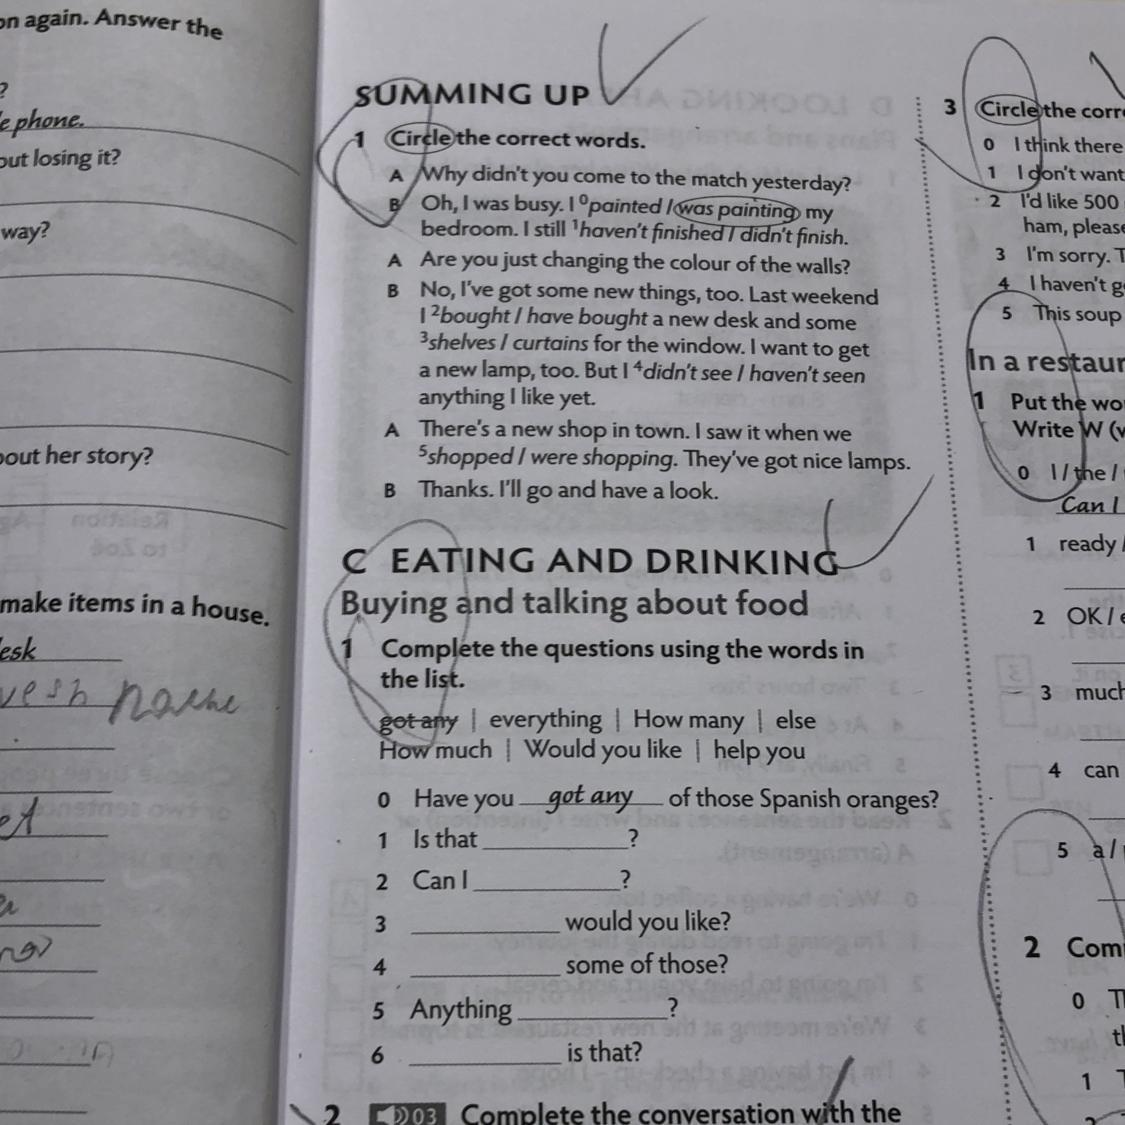 on again. Answer the
?
e phone.
out losing it?
way?
bout her story?
make items in a house.
esk
SUMMING UP
1 Circle the correct words.
A Why didn't you come to the match yesterday?
B Oh, I was busy. I ⁰painted / was painting my
bedroom. I still ¹haven't finished / didn't finish.
A Are you just changing the colour of the walls?
B No, I've got some new things, too. Last weekend
I ²bought / have bought a new desk and some
³shelves / curtains for the window. I want to get
a new lamp, too. But I ⁴didn't see / haven't seen
anything I like yet.
A There's a new shop in town. I saw it when we
⁵shopped / were shopping. They've got nice lamps.
B Thanks. I'll go and have a look.
C EATING AND DRINKING
Buying and talking about food
1 Complete the questions using the words in
the list.
got any | everything | How many | else
How much | Would you like | help you
0 Have you got any of those Spanish oranges?
1 Is that ____________?
2 Can I ____________?
3 ____________ would you like?
4 ____________ some of those?
5 Anything ____________?
6 ____________ is that?
2 03 Complete the conversation with the
3 Circle the corre
0 I think there
1 I don't want
2 I'd like 500
ham, please
3 I'm sorry. T
4 I haven't g
5 This soup
In a restaur
1 Put the wo
Write W (v
0 I / the /
Can I
1 ready /
2 OK / e
3 much
4 can
5 a /
2 Com
0 T
th
1 T